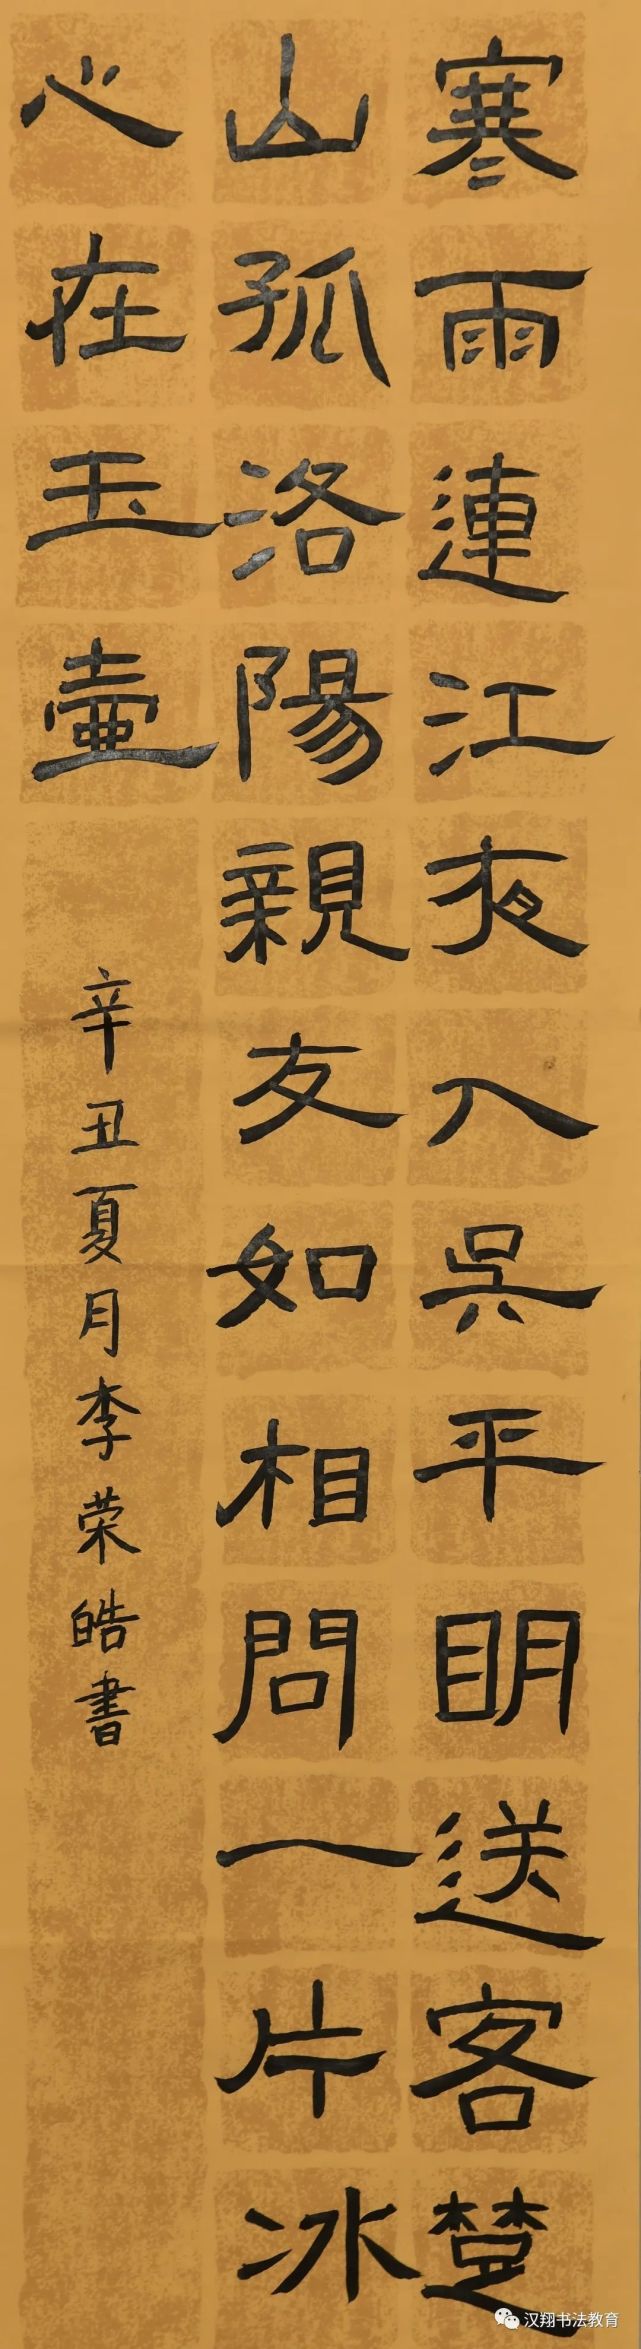 寒雨連江夜入吳平明送客楚
山孤洛陽親友如相問一片冰
心在玉壺
辛丑夏月李荣皓書
汉翔书法教育